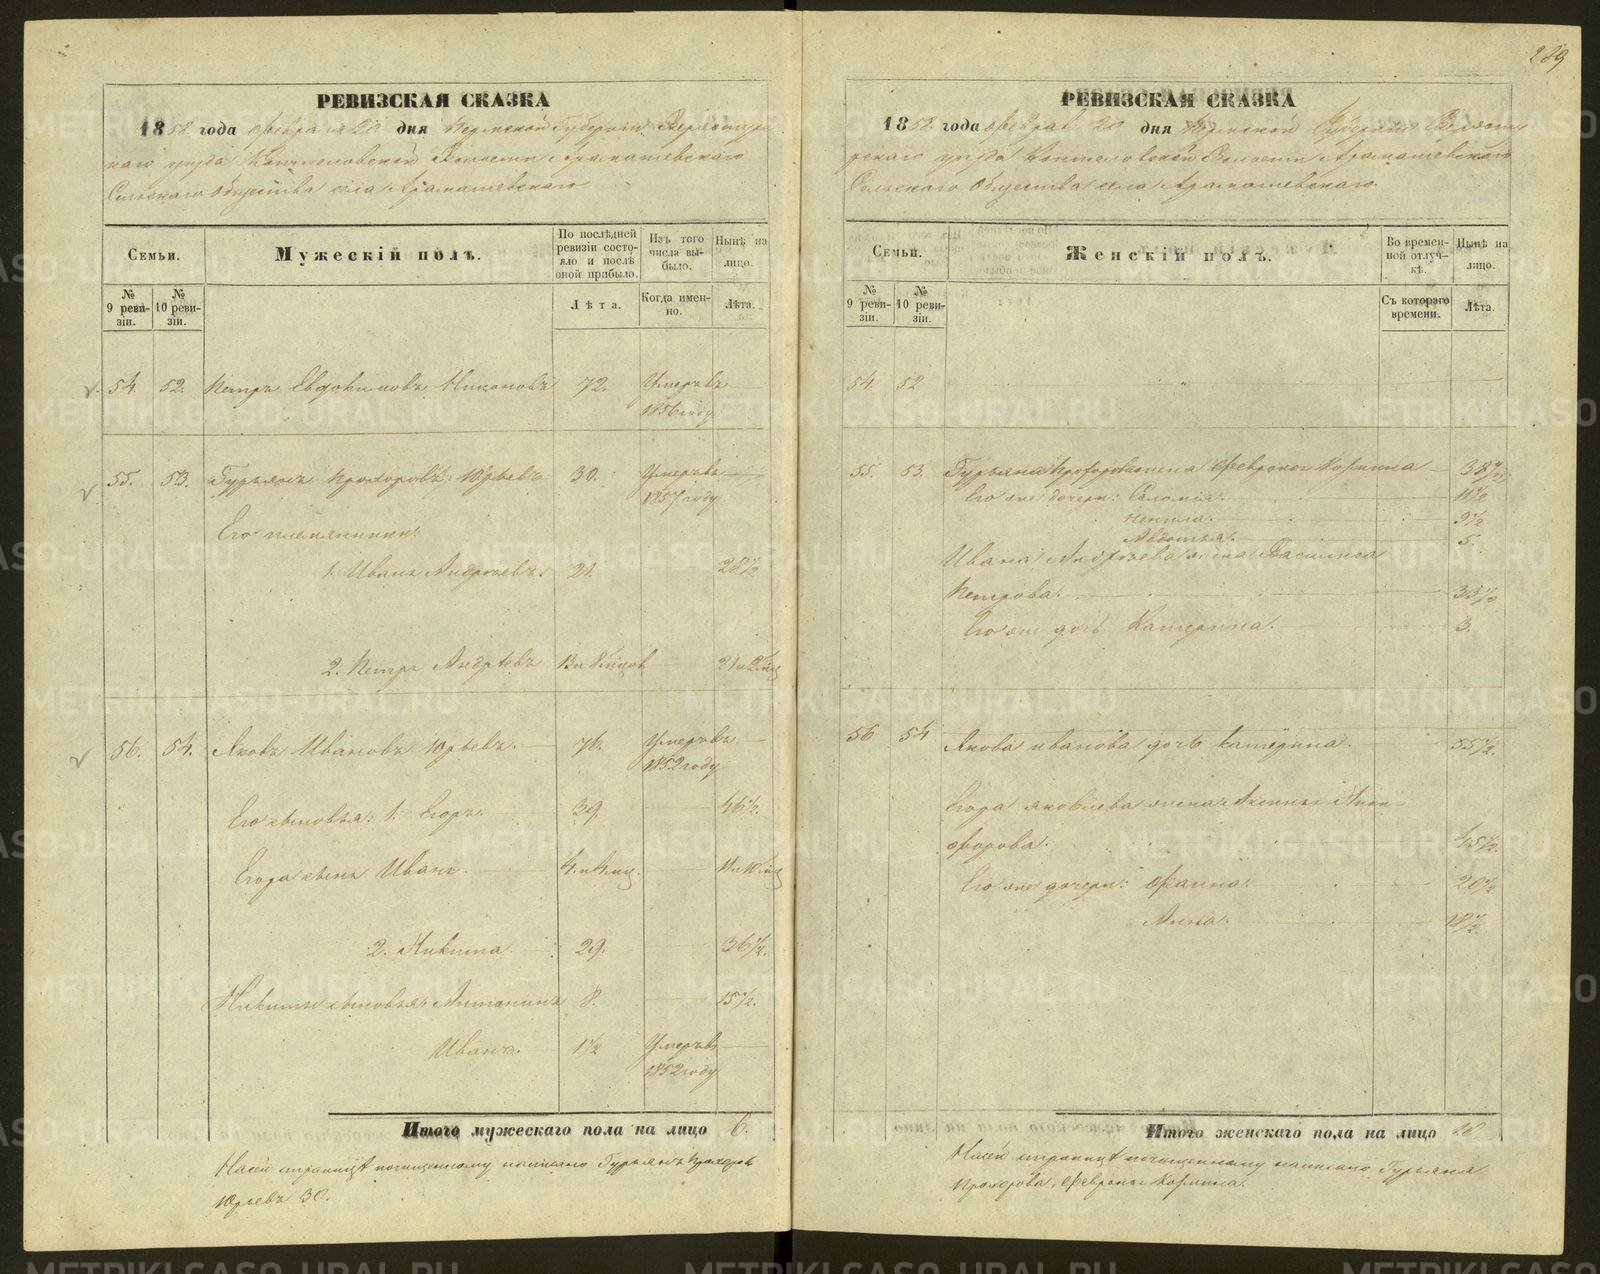 289
РЕВИЗСКАЯ СКАЗКА
1858 года февраля 20 дня Пермской Губернии Верхотур
скаго уезда Коптеловской Волости Арамашевскаго
Сельскаго Общества села Арамашевскаго
Семьи.
Мужескій полъ.
По послѣдней ревизіи состояло и послѣ оной прибыло.
Изъ того числа выбыло.
Нынѣ на лицо.
№ 9 ревизіи.
№ 10 ревизіи.
Лѣта.
Когда именно.
Лѣта.
54. 52. Петръ Евдокимовъ Никоновъ 72. Умеръ въ
1856 году
55. 53. Гурьянъ Прохоровъ Юрьевъ 30. Умеръ въ
1857 году
Его племянники:
1. Иванъ Андреевъ. 21. 28½
2. Петръ Андреевъ 13 и 8 мцов 21 и 2 мц
56. 54. Яковъ Ивановъ Юрьевъ. 76. Умеръ въ
1852 году
Его сыновья: 1. Егоръ. 39. 46½.
Егора сынъ Иванъ. 4 и 4 мц. 11 и 10 мц
2. Никита. 29. 36½.
Никиты сыновья: Антонинъ 8. 15½.
Иванъ. 1½ Умеръ въ
1852 году
Итого мужескаго пола на лицо 6.
На сей страницѣ по чищенному написано Гурьянъ Прохоров
Юрьевъ 30.
РЕВИЗСКАЯ СКАЗКА
1858 года феврал 20 дня Пермской Губернии Верхоту
рскаго уезда Коптеловской Волости Арамашевскаго
Сельскаго Общества села Арамашевскаго.
Семьи.
Женскій полъ.
Во временной отлучкѣ.
Нынѣ на лицо.
№ 9 ревизіи.
№ 10 ревизіи.
Съ котораго времени.
Лѣта.
54. 52
55. 53. Гурьяна Прохорова жена Феврония Кормина 38½
Его же дочери: Саломия. 11½
9½
Авдотья. 5.
Ивана Андреева жена Василиса
Петрова. 35½
Его же дочь Катерина. 3.
56 54 Якова Иванова дочь Катерина. 55½.
Егора Яковлева жена Аксинья Ники
форова. 45½.
Его же дочери: Фаина. 20½.
Анна. 18½.
Итого женскаго пола на лицо 10.
На сей страницѣ по чищенному написано Гурьяна
Прохорова, Феврония Кормина.
METRIKI.GASO-URAL.RU